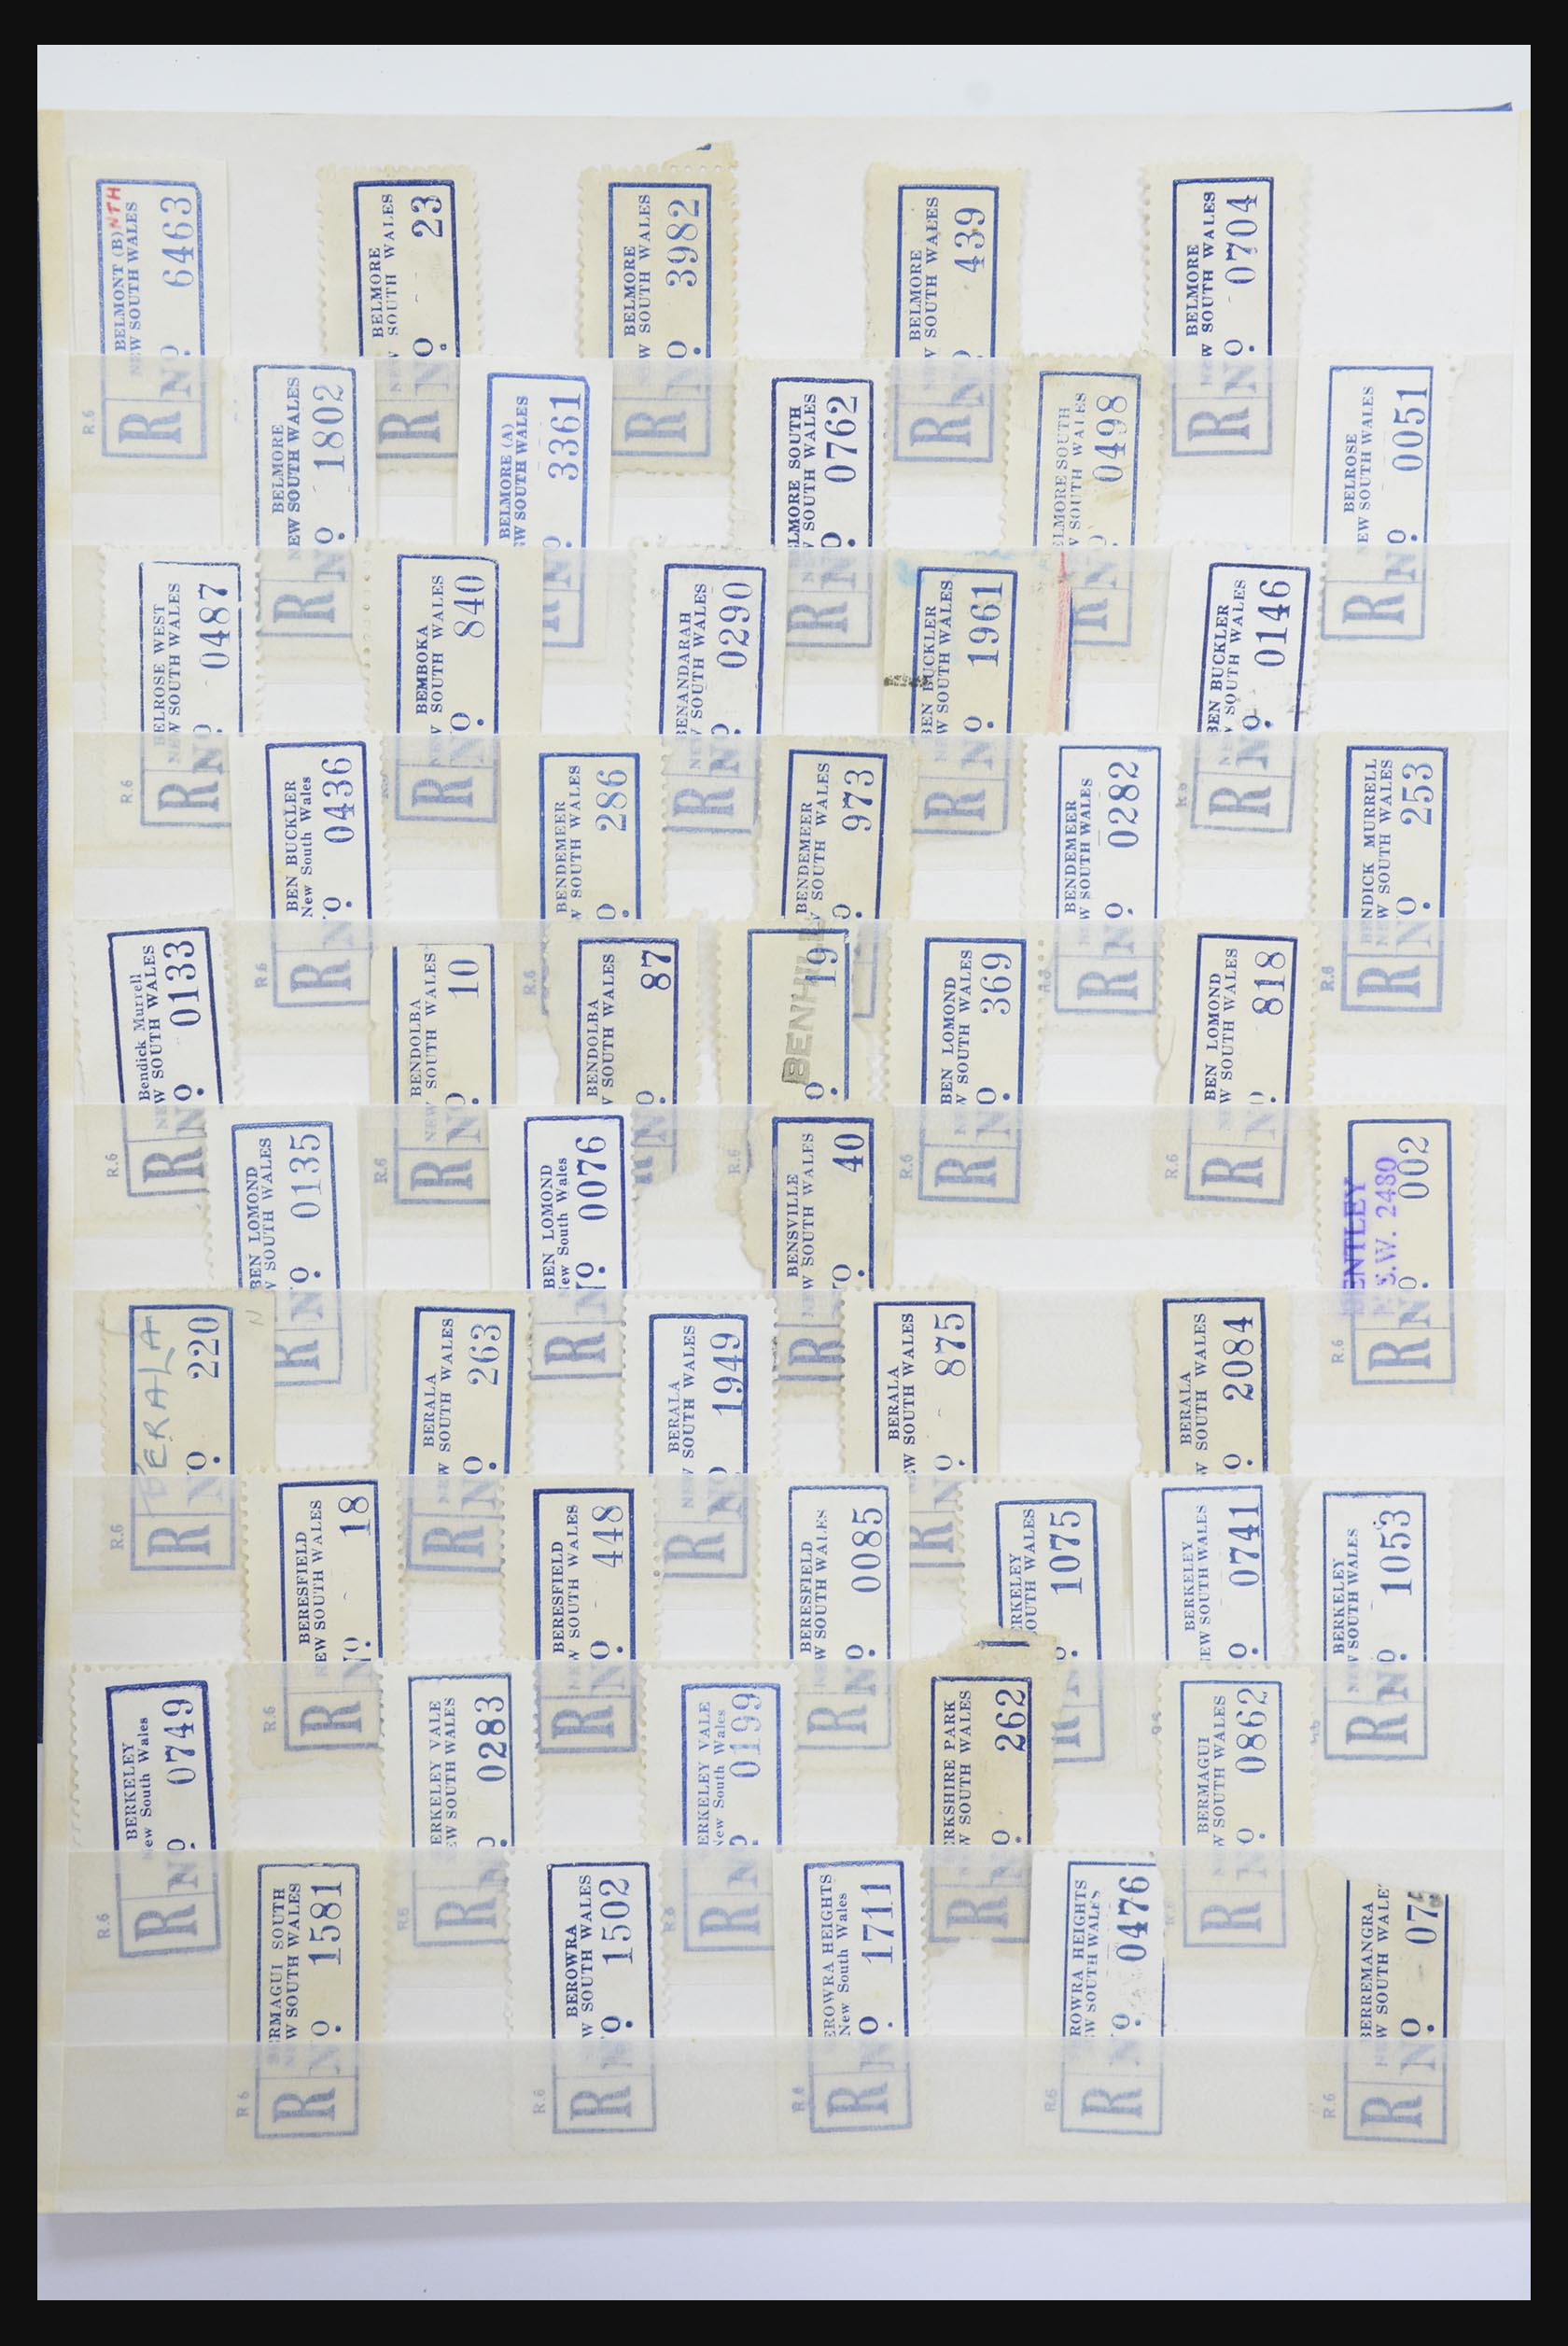 BELMONT (B) NTH
NEW SOUTH WALES
R.6
R No 6463
BELMORE
NEW SOUTH WALES
R No 23
BELMORE
NEW SOUTH WALES
R No 3982
BELMORE
NEW SOUTH WALES
R No 439
BELMORE
NEW SOUTH WALES
R No 0704
BELMORE
NEW SOUTH WALES
R No 1802
BELMORE (A)
EW SOUTH WALES
R No 3361
ELMORE SOUTH
NEW SOUTH WALES
R No 0762
ELMORE SOUTH
SOUTH WALES
R No 0498
BELROSE
NEW SOUTH WALES
R No 0051
ELROSE WEST
NEW SOUTH WALES
R.6
R No 0487
BEMBOKA
NEW SOUTH WALES
R No. 840
BENANDARAH
NEW SOUTH WALES
R No 0290
BEN BUCKLER
NEW SOUTH WALES
R No 1961
BEN BUCKLER
NEW SOUTH WALES
R.6
R No 0146
BEN BUCKLER
New South Wales
R.6
R No 0436
BENDEMEER
W SOUTH WALES
R.6
No. 286
BENDEMEER
W SOUTH WALES
No 973
BENDEMEER
W SOUTH WALES
R No 0282
BENDICK MURRELL
NEW SOUTH WALES
R.6
R No. 253
Bendick Murrell
NEW SOUTH WALES
R.6
R No 0133
BENDOLBA
NEW SOUTH WALES
R.6
R No 10
BENDOLBA
SOUTH WALES
R No 87
BENHILL
R.6
No. 19
BEN LOMOND
NEW SOUTH WALES
R.6
R No. 369
BEN LOMOND
NEW SOUTH WALES
R.6
R No 818
BEN LOMOND
W SOUTH WALES
R No. 0135
BEN LOMOND
New South Wales
R No 0076
BENSVILLE
W SOUTH WALES
R No. 40
BENTLEY
N.S.W. 2480
R.6
R No. 002
BERALA
R.6
R No 220
BERALA
NEW SOUTH WALES
R No 263
BERALA
NEW SOUTH WALES
R No 1949
BERALA
EW SOUTH WALES
R No 875
BERALA
W SOUTH WALES
No 2084
BERESFIELD
NEW SOUTH WALES
R.6
R No. 18
BERESFIELD
NEW SOUTH WALES
R No. 448
BERESFIELD
W SOUTH WALES
R No 0085
ERKELEY
OUTH WALES
R No 1075
BERKELEY
EW SOUTH WALES
No 0741
BERKELEY
NEW SOUTH WALES
R No 1053
BERKELEY
New South Wales
R.6
R No 0749
ERKELEY VALE
EW SOUTH WALES
R.6
R No 0283
ERKELEY VALE
New South Wales
R.6
R No 0199
RKSHIRE PARK
NEW SOUTH WALES
R No. 262
BERMAGUI
NEW SOUTH WALES
R.6
R No 0862
ERMAGUI SOUTH
NEW SOUTH WALES
R.6
R No. 1581
BEROWRA
W SOUTH WALES
R.6
R No 1502
EROWRA HEIGHTS
New South Wales
R.6
R No. 1711
EROWRA HEIGHTS
W SOUTH WALES
R.6
R No 0476
BERREMANGRA
NEW SOUTH WALE
R.6
R No. 07